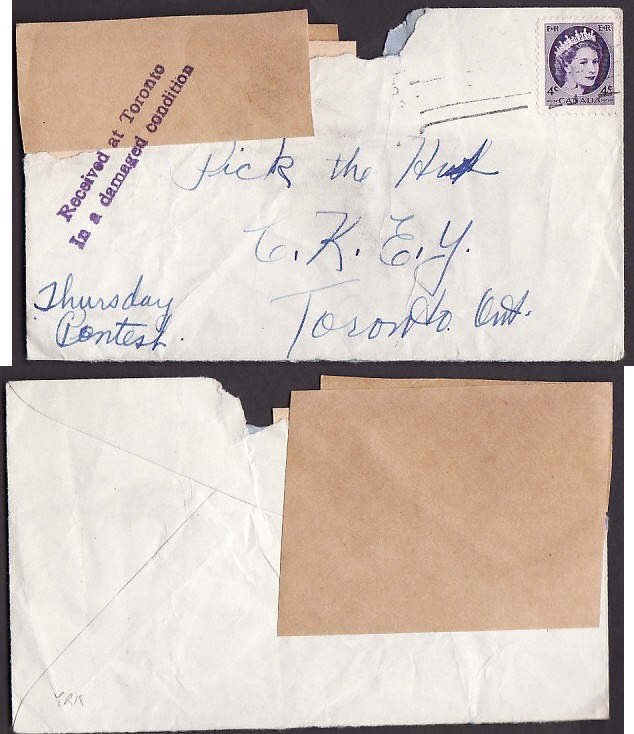 Received at Toronto
In a damaged condition
E R E R
4c 4c
CANADA
Pick the Hit
C.K.E.Y.
Toronto. Ont.
Thursday
Contest.